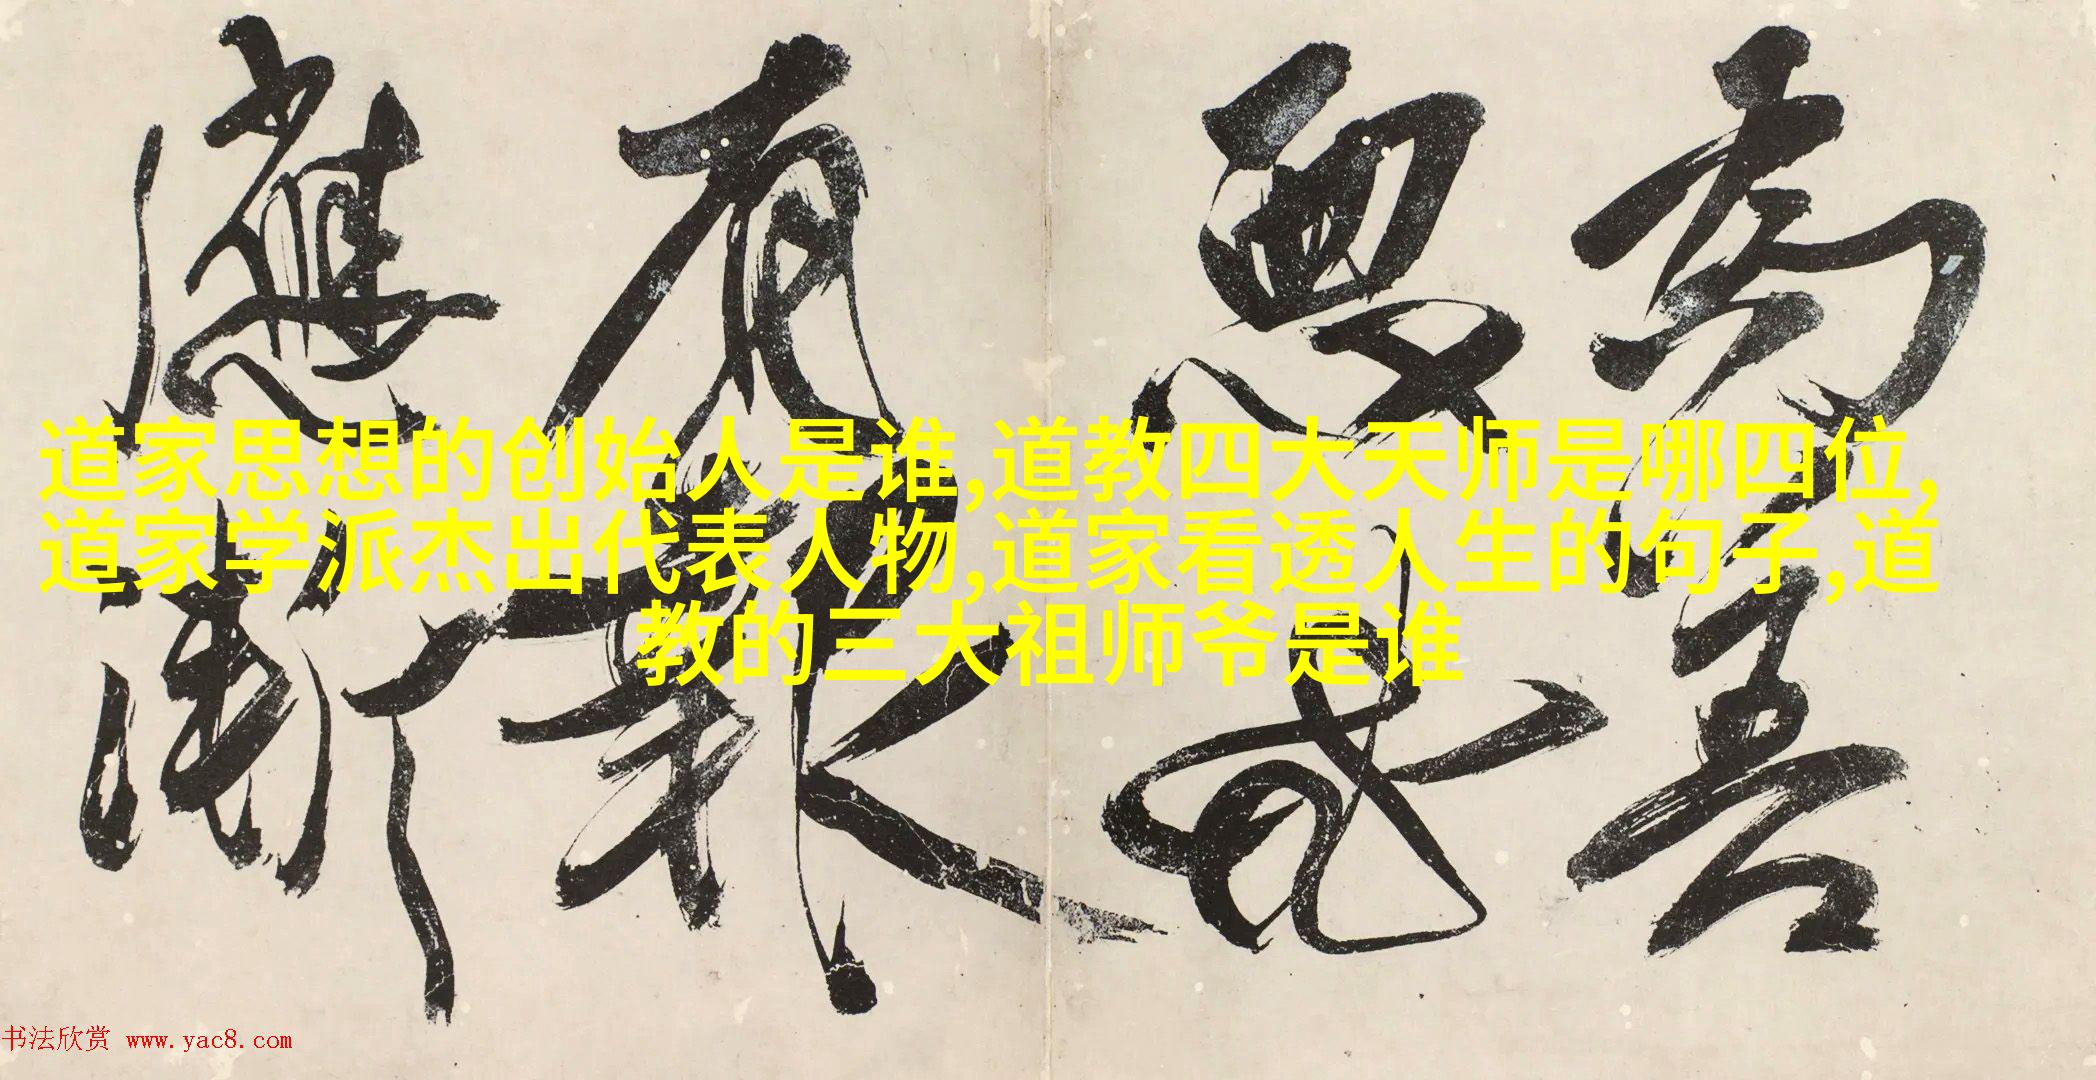 為善
惡
有報
應漸
道家思想的创始人是谁,道教四大天师是哪四位,
道家学派杰出代表人物,道家看透人生的句子,道
教的三大祖师爷是谁
书法欣赏 www.yac8.com